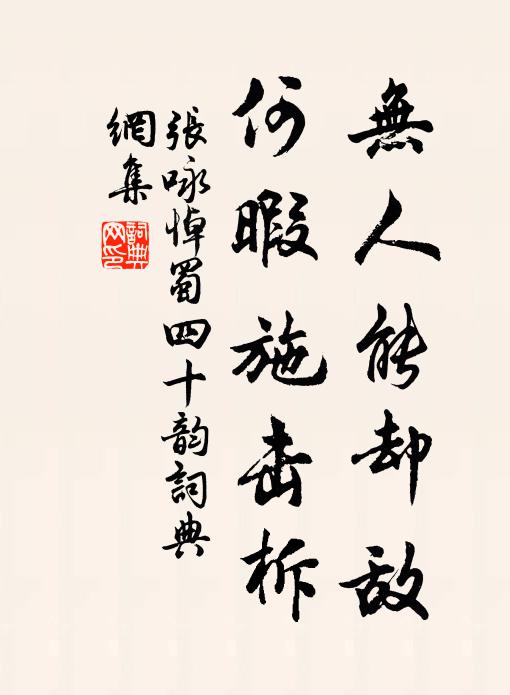 無人能却敌
何暇施击柝
張咏悼蜀四十韵詞典
網集
詞典
网印